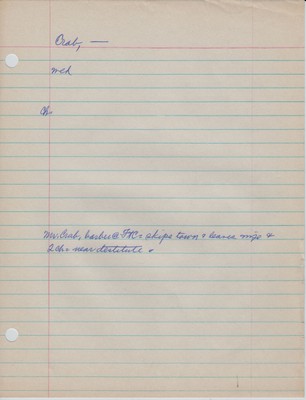 Crab, —
mch
Ch-
Mr. Crab, barber @ FTC = skips town & leaves wife &
2 ch = near destitute.